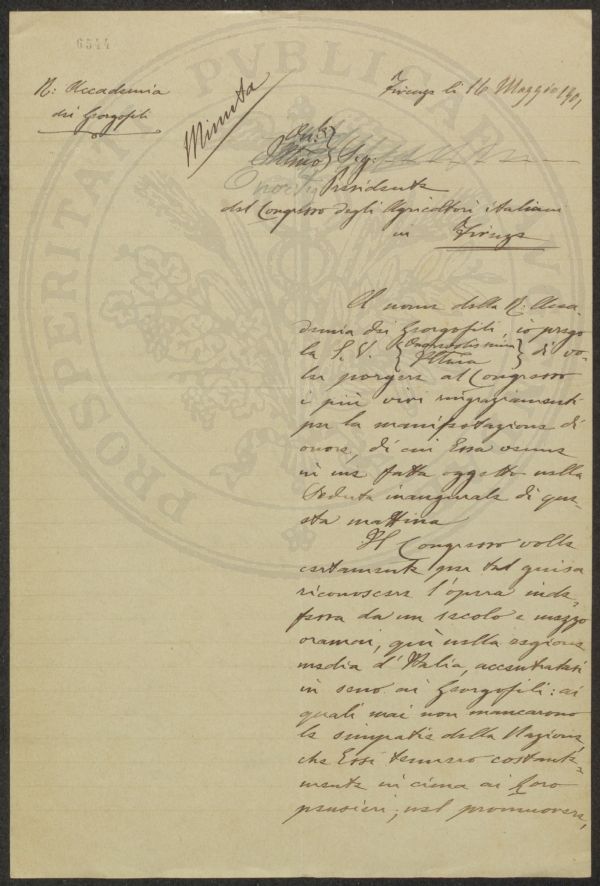 6544
R: Accademia
dei Georgofili
Minuta
Firenze li 16 Maggio 1901
Sig:
Presidente
del Congresso degli Agricoltori italiani
in Firenze
PROSPERITATI PVBLICAE
A nome della R: Acca-
demia dei Georgofili, io prego
la S. V. { Onorevolissima
Ill.ma } di vo-
ler porgere al Congresso
i più vivi ringraziamenti
per la manifestazione di
onore, di cui Essa venne
in me fatta oggetto nella
Seduta inaugurale di que-
sta mattina
Il Congresso volle
certamente per tal guisa
riconoscere l'opera inde-
fessa da un secolo e mezzo
oramai, qui nella regione
media d'Italia, accentratasi
in seno ai Georgofili: ai
quali mai non mancarono
le simpatie della Nazione,
che Essi tennero costante-
mente in cima ai loro
pensieri; nel promuovere,